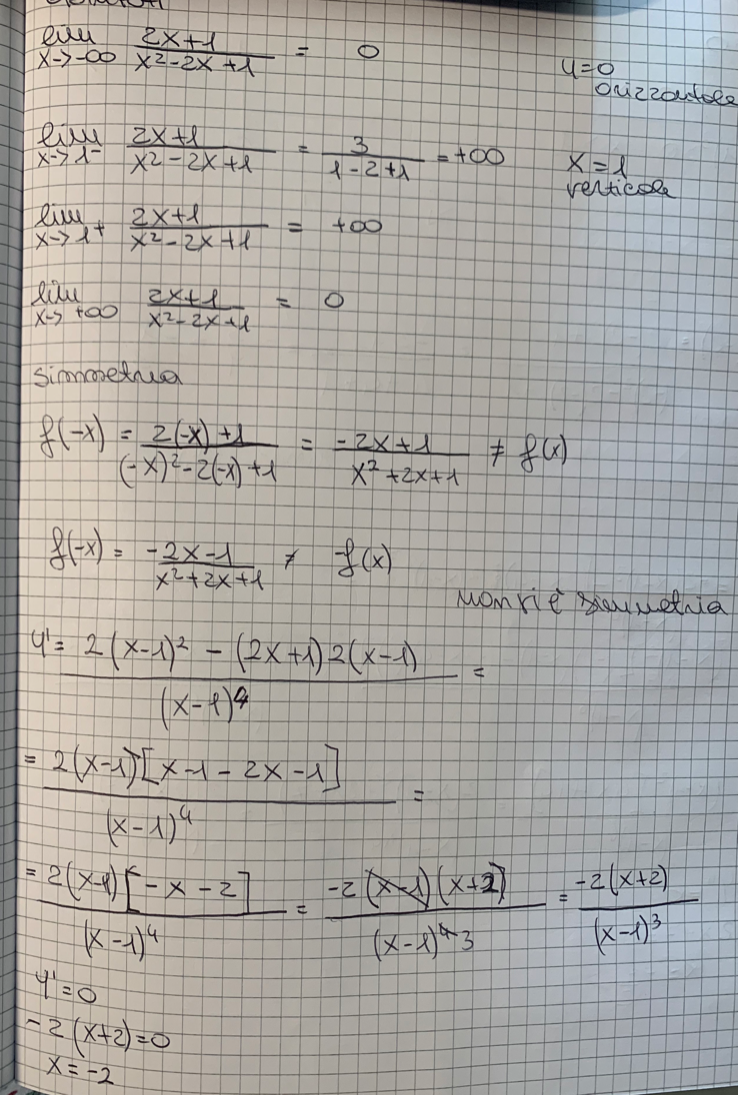 lim x→-∞ (2x+1)/(x²-2x+1) = 0
y=0
orizzontale
lim x→1⁻ (2x+1)/(x²-2x+1) = 3/(1-2+1) = +∞
x=1
verticale
lim x→1⁺ (2x+1)/(x²-2x+1) = +∞
lim x→+∞ (2x+1)/(x²-2x+1) = 0
simmetria
f(-x) = (2(-x)+1)/((-x)²-2(-x)+1) = (-2x+1)/(x²+2x+1) ≠ f(x)
f(-x) = (-2x-1)/(x²+2x+1) ≠ -f(x)
non vi è simmetria
y' = (2(x-1)² - (2x+1)2(x-1))/(x-1)⁴ =
= (2(x-1)[x-1-2x-1])/(x-1)⁴ =
= (2(x-1)[-x-2])/(x-1)⁴ = (-2(x-1)(x+2))/(x-1)⁴ 3 = (-2(x+2))/(x-1)³
y'=0
-2(x+2)=0
x=-2